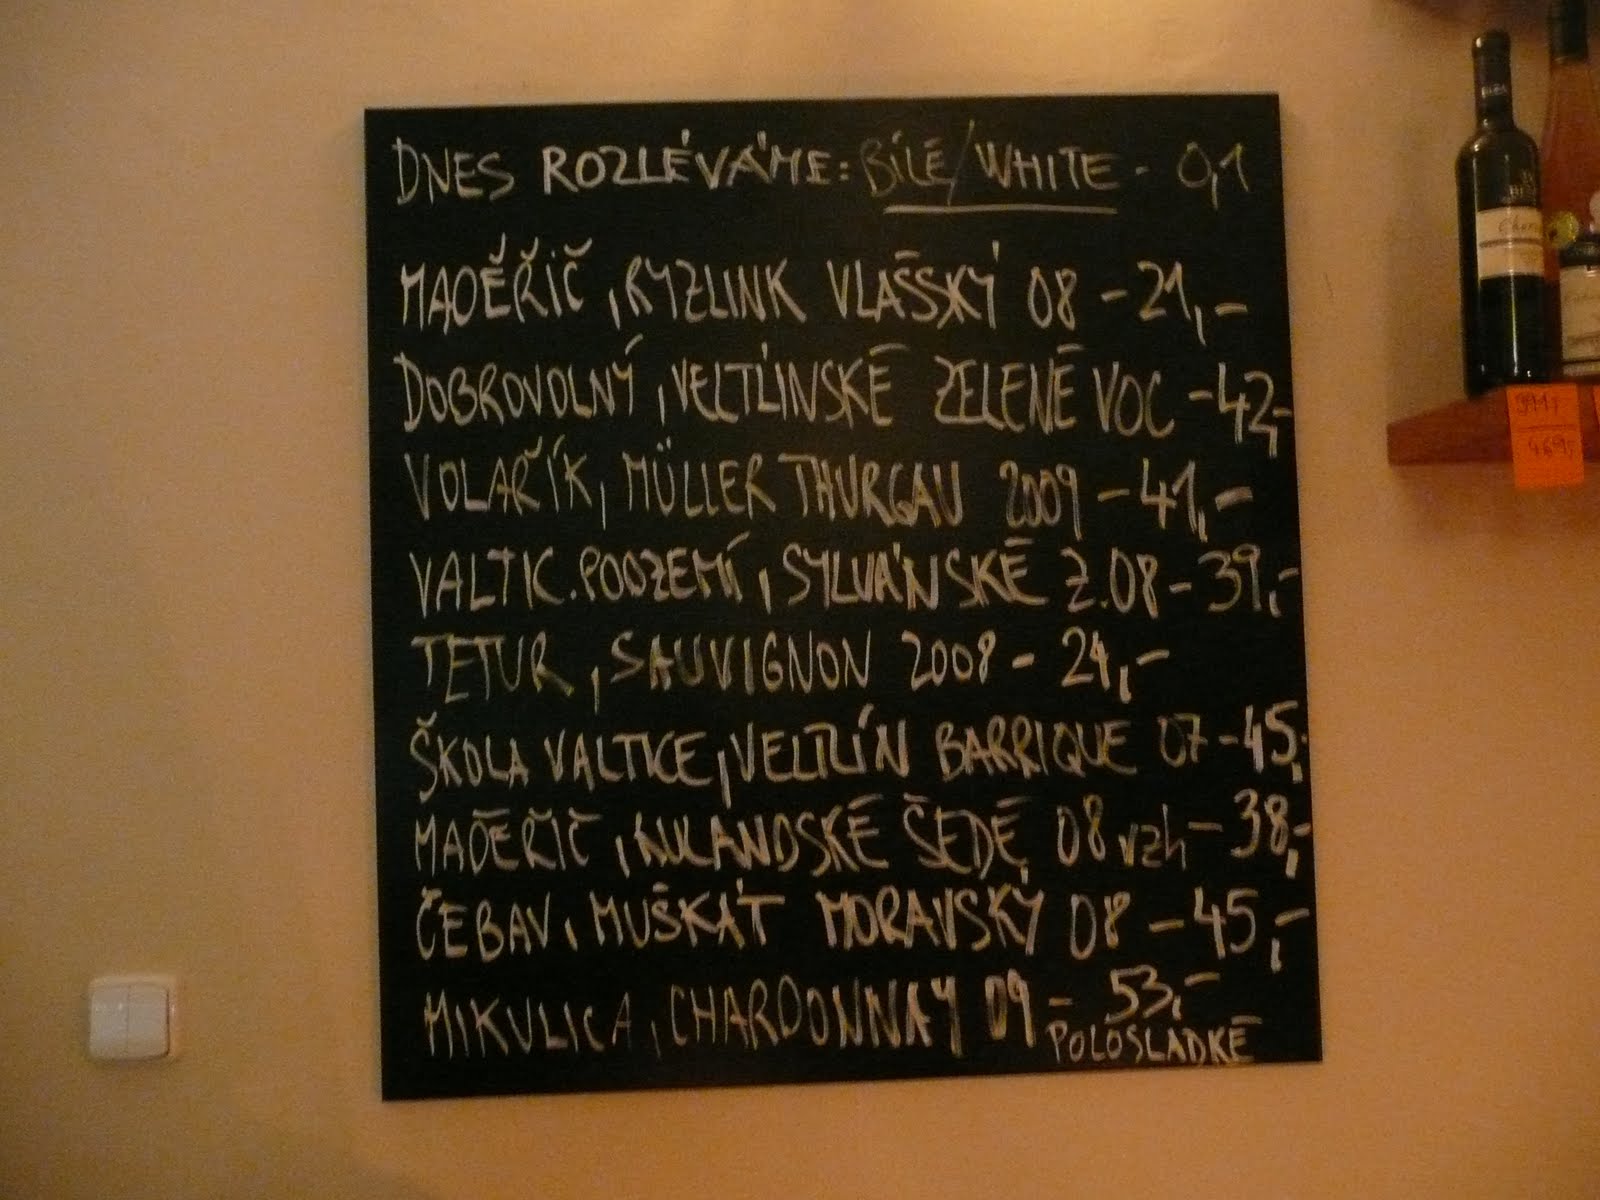 DNES ROZLÉVÁME: BÍLÉ/WHITE - 0,1
MAĎĚŘIČ, RYZLINK VLAŠSKÝ 08 - 21,-
DOBROVOLNÝ, VELTLÍNSKÉ ZELENÉ VOC - 42,-
VOLAŘÍK, MÜLLER THURGAU 2009 - 41,-
VALTIC. PODZEMÍ, SYLVÁNSKÉ Z. 08 - 39,-
TETUR, SAUVIGNON 2008 - 24,-
ŠKOLA VALTICE, VELTLÍN BARRIQUE 07 - 45,-
MAĎĚŘIČ, RULANDSKÉ ŠEDÉ, 08 vzh - 38,-
ČEBAV, MUŠKÁT MORAVSKÝ 08 - 45,-
MIKULICA, CHARDONNAY 09 - 53,-
POLOSLADKÉ